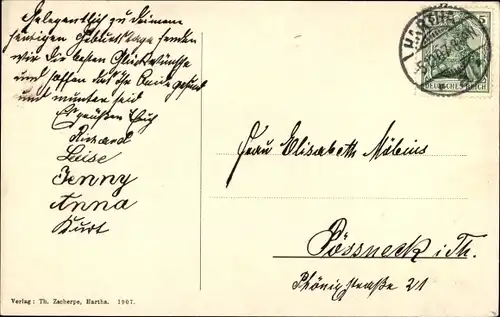 Gelegentlich zu Deinem
heutigen Geburtstage senden
wir die besten Glückwünsche
und hoffen daß Ihr Alle gesund
und munter seid
Es grüßen Euch
Richard
Luise
Jenny
Anna
Kurt
HARTHA
5
DEUTSCHES REICH
Frau Elisabeth Möbius
Pössneck i. Th.
Phönixstraße 21
Verlag: Th. Zscherpe, Hartha. 1907.